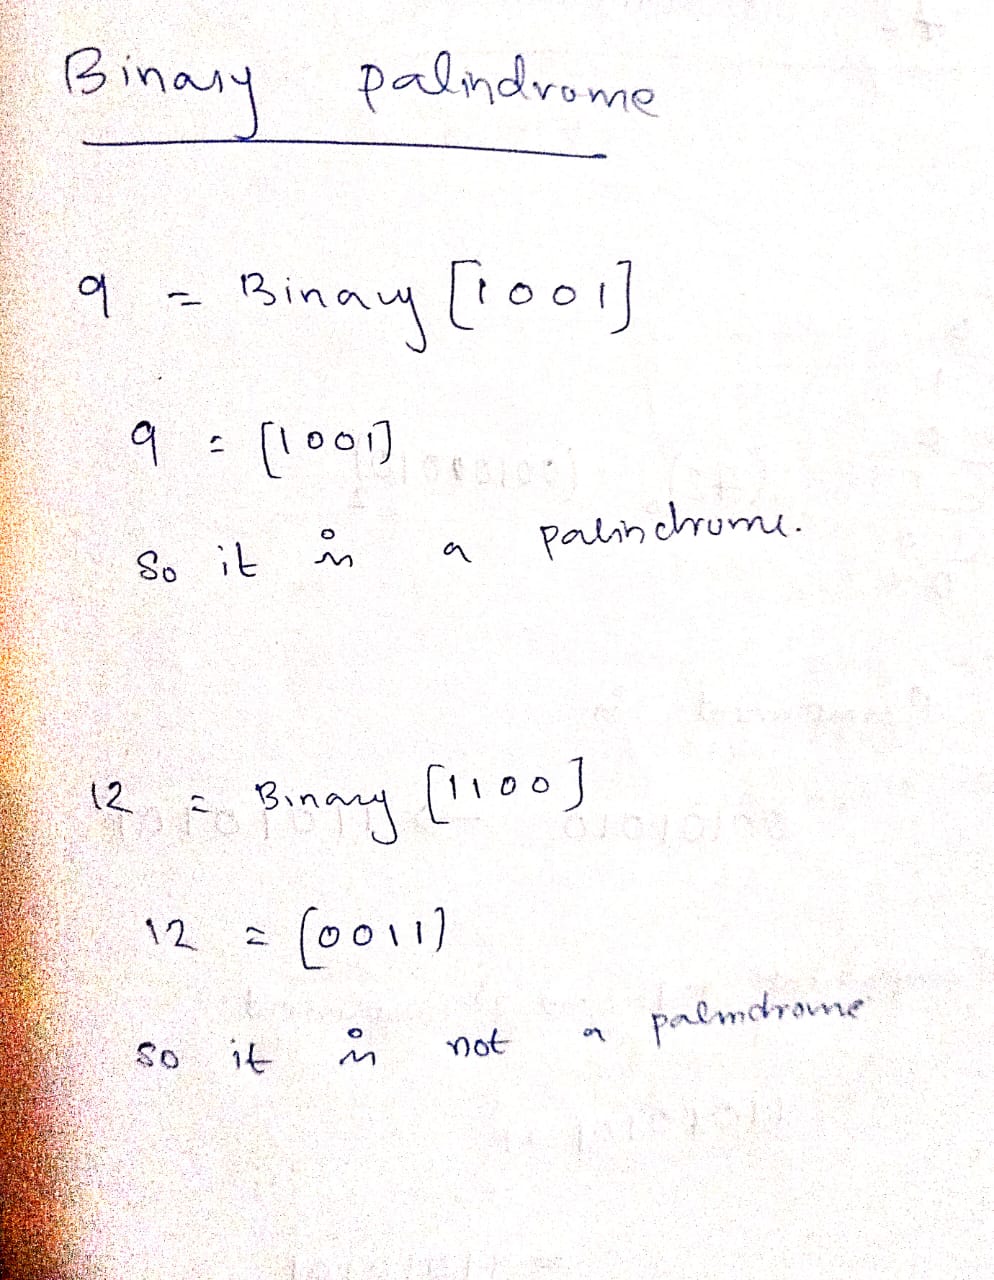 Binary palindrome
9 = Binary [1001]
9 = [1001]
So it is a palindrome.
12 = Binary [1100]
12 = [0011]
So it is not a palindrome